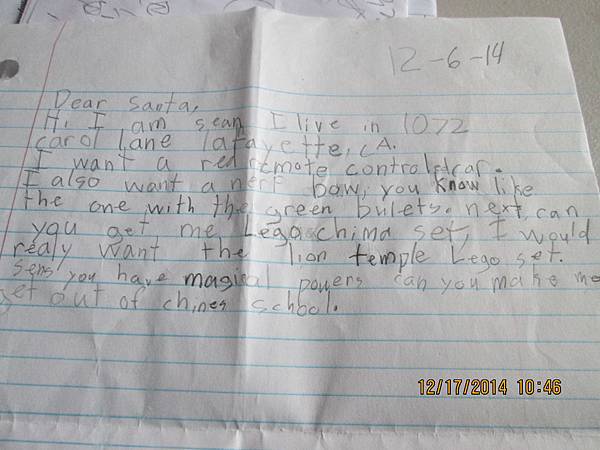 12-6-14
Dear Santa,
Hi I am sean I live in 1072
carol lane lafayette, CA.
I want a red remote control car.
I also want a nerf bow, you know like
the one with the green bulets. next can
you get me Lego chima set, I would
realy want the lion temple Lego set.
sens you have magical powers can you make me
get out of chines school.
12/17/2014 10:46